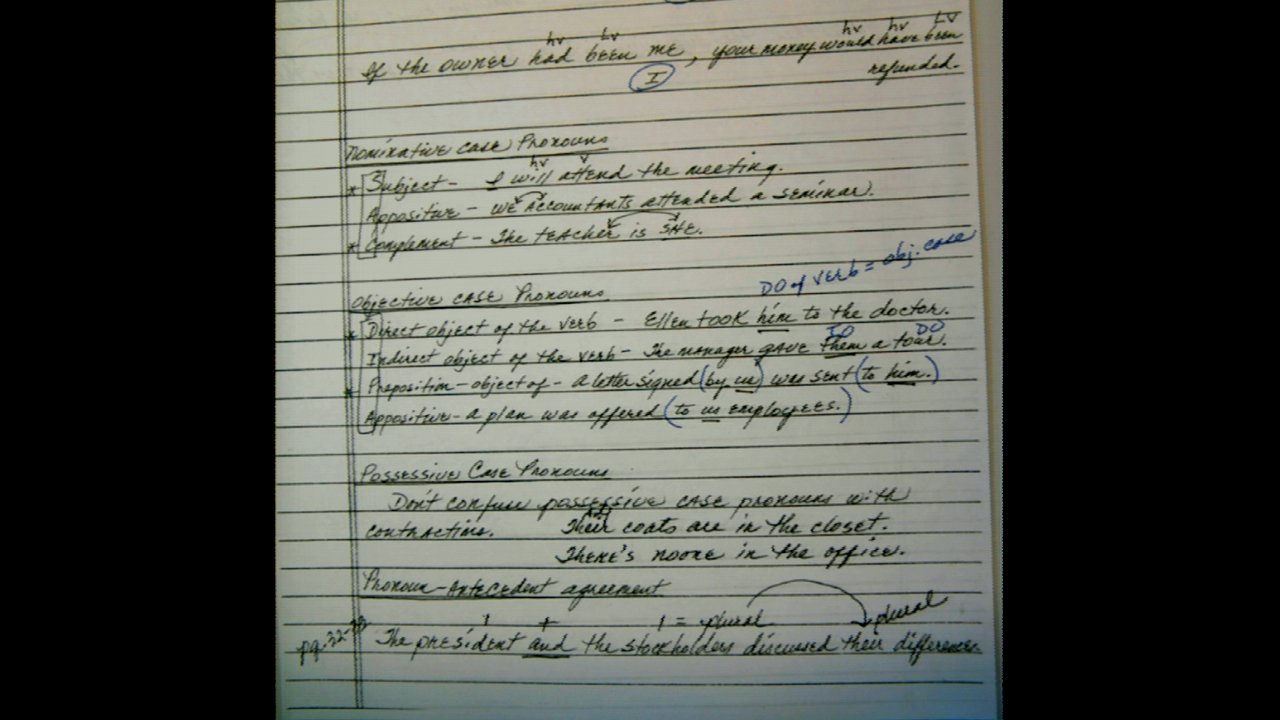 hv hv hv hv hv
If the owner had been me, your money would have been
I refunded.
Nominative Case Pronouns
hv v
* Subject - I will attend the meeting.
Appositive - We Accountants attended a seminar.
* Complement - The teacher is SHE.
DO of verb = obj. case
Objective Case Pronouns
* Direct object of the verb - Ellen took him to the doctor.
IO DO
Indirect object of the verb - The manager gave them a tour.
* Preposition - object of - A letter signed (by us) was sent (to him.)
Appositive - A plan was offered (to us employees.)
Possessive Case Pronouns
Don't confuse possessive case pronouns with
contractions. Their coats are in the closet.
There's noone in the office.
Pronoun - Antecedent agreement
1 + 1 = plural plural
pg. 32- The president and the stockholders discussed their differences.